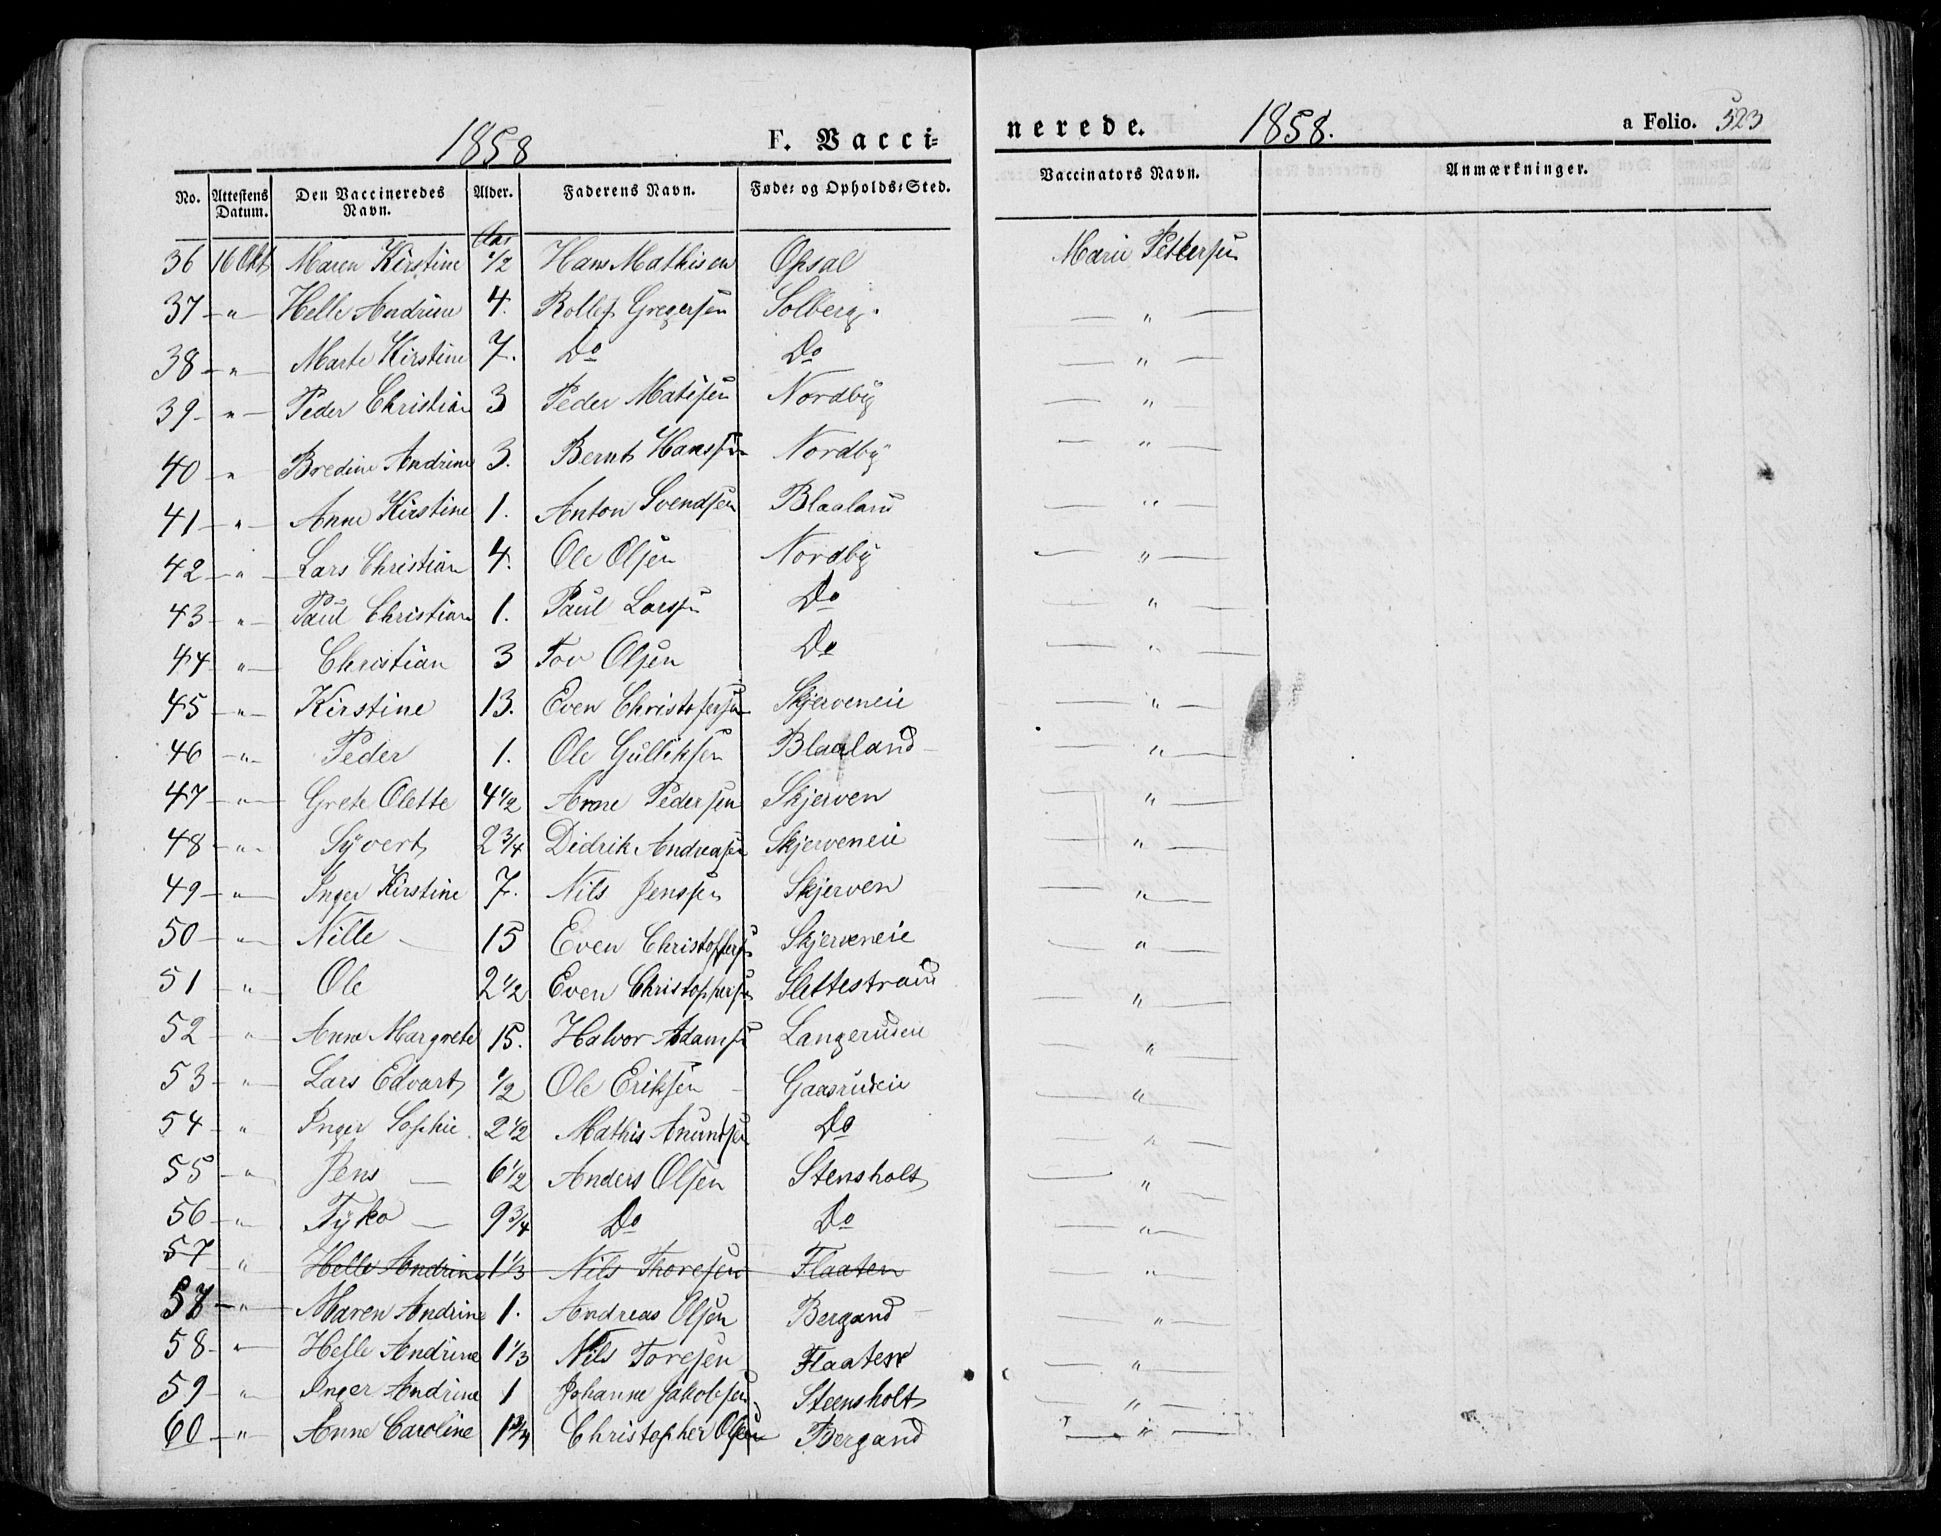 1858 F. Vacci=
nerede. 1858. a Folio. 523
No. Attestens Datum. Den Vaccineredes Navn. Alder. Faderens Navn. Føde= og Opholds=Sted. Vaccinators Navn. Anmærkninger.
Aar
36 16 Okt Maren Kirstine 1/2 Hans Mathisen Opsal Marie Pettersen
37 — " — Helle Andrine 4. Rollef Gregersen Solberg. — " —
38 — " Marte Kirstine 7. Do Do — " —
39 — " — Peder Christian 3 Peder Matisen Nordby — " —
40 " Bredine Andrine 3. Bernt Hanssen Nordby — " —
41 — " — Anne Kirstine 1. Anton Svendsen Blaaland — " —
42 — " — Lars Christian 4. Ole Olsen Nordby — " —
43 — " — Paul Christian 1. Paul Larssen Do — " —
44 " — Christian 3 Tov Olsen Do — " —
45 — " — Kirstine 13. Even Christofersen Skjerveneie — " —
46 — " — Peder 1. Ole Gulliksen Blaaland — — " —
47 — " — Grete Olette 4 1/2 Arne Pedersen Skjerven — " —
48 — " — Syvert 2 3/4 Didrik Andreasen Skjerveneie — " —
49 — " — Inger Kirstine 7. Nils Jenssen Skjerven — " —
50 — " — Nille — 15 Even Christoffersen Skjerveneie — " —
51 — " — Ole 2 1/2 Even Christophersen Slettestrand — " —
52 — " — Anne Margrete 15. Halvor Adamsen Langerudeie — " —
53 — " — Lars Edvart 1/2 Ole Eriksen — Gaasrudeie — " —
54 — " Inger Sophie. 2 1/2 Mathis Anundsen Do — " —
55 — " — Jens — 6 1/2 Anders Olsen Stensholt — " —
56 — " — Tyko — 9 3/4 Do Do — " —
57 " Helle Andrine 1 1/3 Nils Thoresen Flaaten — " —
57 — " — Maren Andrine 1. Andreas Olsen Bergand — — " —
58 — " — Helle Andrine 1 1/3 Nils Toresen Flaaten — " —
59 — " — Inger Andrine 1 Johanne Jakobsen Steensholt — " —
60 — " — Anne Caroline 1 3/4 Christopher Olsen Bergand — " —